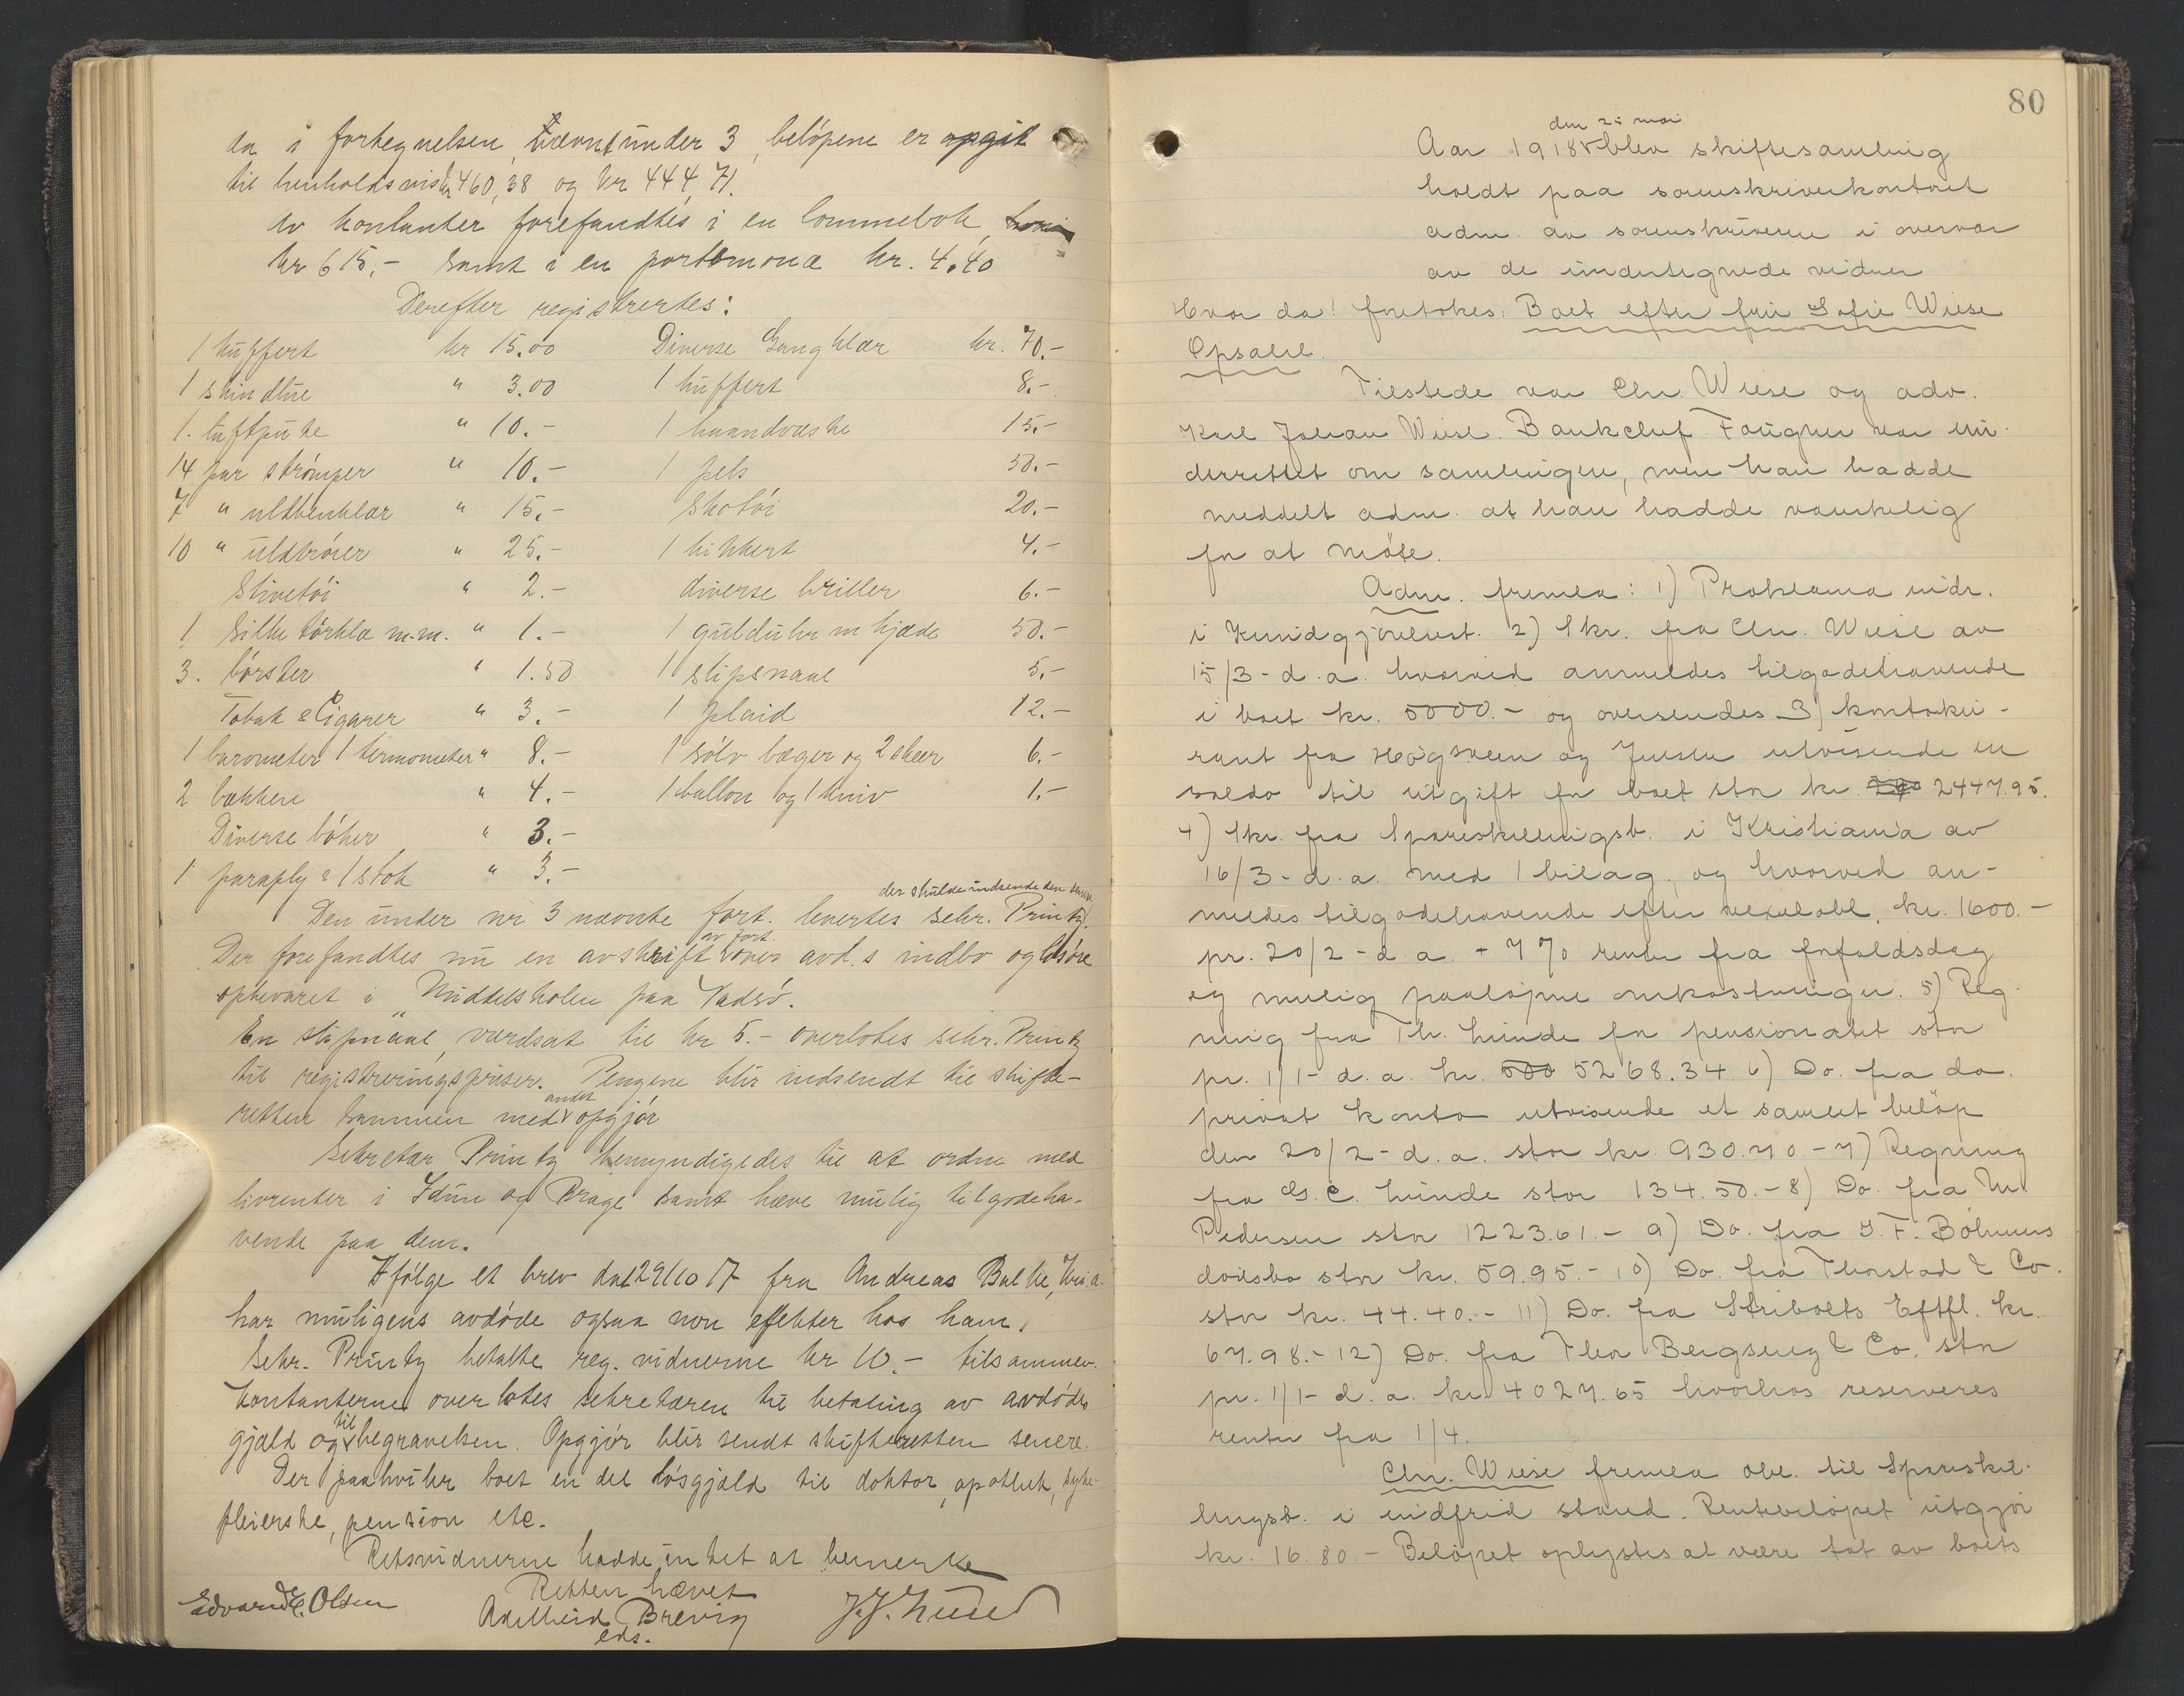 da i fortegnelsen, nævnt under 3, beløpene er opgit
til henholdsvis kr 460,38 og kr 444,71.
Av kontanter forefandtes i en lommebok
kr 615,- samt i en portemonæ kr. 4,40
Derefter registrertes:
1 kuffert kr 15.00 Diverse Gangklær kr. 70.-
1 skindlue " 3.00 1 kuffert 8.-
1. luftpute " 10.- 1 haandvæske 15.-
14 par strømper " 10.- 1 pels 50.-
7 " uldbenklær " 15.- Skotøi 20.-
10 " uldtrøier " 25.- 1 kikkert 4.-
Stivetøi " 2.- diverse briller 6.-
1 silketørklæ m.m. " 1.- 1 gulduhr m kjæde 50.-
3. børster " 1.50 1 slipsnaal 5.-
Tobak & Cigarer " 3.- 1 plaid 12.-
1 barometer 1 termometer " 8.- 1 sølv bæger og 2 skeer 6.-
2 bækken " 4.- 1 ballon og 1 kniv 1.-
Diverse bøker " 3.-
1 paraply & 1 stok " 3.-
der skulde indsende den senere
Den under nr 3 nævnte fort. levertes sekr. Printz.
Der forefandtes nu en avskrift av fort. over avd.s indbo og løsøre
opbevaret i "Middelskolen paa Vadsø.
En slipsnaal, værdsat til kr 5.- overlotes sekr. Printz
til registreringspriser. Pengene blir indsendt til skifte-
retten sammen med andet opgjør
Sekretær Printz bemyndigedes til at ordne med
livrenter i Idun og Brage samt hæve mulig tilgodeha-
vende paa dem.
Ifølge et brev dat 29/10 17 fra Andreas Balke, Kr.a.
har muligens avdøde ogsaa noen effekter hos ham.
Sekr. Printz betalte reg. vidnerne kr 10.- tilsammen.
Kontanterne overlotes sekretæren til betaling av avdødes
gjæld og til begravelsen. Opgjør blir sendt skifteretten senere.
Der paahviler boet en del løsgjæld til doktor, apothek, syke-
pleierske, pension etc.
Retsvidnerne hadde intet at bemerke
Retten hævet
Edvard E. Olsen Adelheid Brevig J.J. Lund
eds.
80
den 2. mai
Aar 1918 blev skiftesamling
holdt paa sorenskriverkontoret
adm. av sorenskriveren i overvær
av de undertegnede vidner
Hvor da! foretokes: Boet efter fru Sofie Wiese
Opsahl.
Tilstede var Chr. Wiese og adv.
Karl Johan Wiese. Bankchef Fougner var un-
derrettet om samlingen, men han hadde
meddelt adm. at han hadde vanskelig
for at møte.
Adm. fremla: 1) Proklama indr.
i Kundgjørelsest. 2) Skr. fra Chr. Wiese av
15/3 - d.a. hvorved anmeldes tilgodehavende
i boet kr. 5000.- og oversendes 3) kontoku-
rant fra Høgsveen og Juuln utvisende en
saldo til utgift for boet stor kr. 2447.95.
4) Skr. fra Spareskillingsb. i Kristiania av
16/3 - d.a. med 1 bilag, og hvorved an-
meldes tilgodehavende efter vexelobl. kr. 1600.-
pr. 20/2 - d.a. + 7 % renter fra forfaldsdag
og mulig paaløpne omkostninger. 5) Reg-
ning fra Th. Lunde for pensionatet stor
pr. 1/1 - d.a. kr. 5268.34 6) Do. fra do.
privat konto utvisende et samlet beløp
den 20/2 - d.a. stor kr. 930.70 - 7) Regning
fra G.C. Lunde stor 134.50.- 8) Do. fra M
Pedersen stor 1223.61.- 9) Do. fra J.F. Bøhmers
dødsbo stor kr. 59.95.- 10) Do. fra Thorstad & Co.
stor kr. 44.40.- 11) Do. fra Stribolts Eftfl. kr.
67.98.- 12) Do. fra Thor Bergseng & Co. stor
pr. 1/1 - d.a. kr 4027.65 hvorhos reserveres
renter fra 1/4.
Chr. Wiese fremla obl. til Spareskil-
lingsb. i indfrid stand. Rentebeløpet utgjør
kr. 16.80.- Beløpet oplystes at være tat av boets